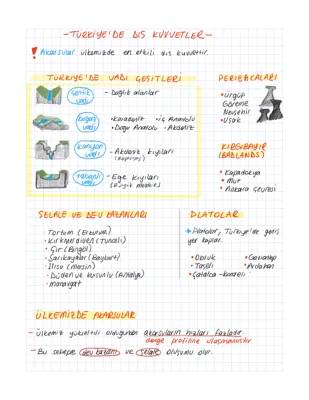 -TÜRKİYE'DE DIŞ KUVVETLER-
! Akarsular ülkemizde en etkili dış kuvvettir.
TÜRKİYE'DE VADİ ÇEŞİTLERİ
Çentik vadi - Dağlık alanlar
Boğaz vadi • Karadeniz • İç Anadolu
• Doğu Anadolu • Akdeniz
Kanyon vadi - Akdeniz kıyıları
Tabanlı vadi - Ege kıyıları
PERİBACALARI
• Ürgüp
Göreme
Nevşehir
• Uşak
KIRGIBAYIR
(BADLANDS)
• Kapadokya
• Mut
• Ankara çevresi
ŞELALE VE DEV KAZANLARI
Tortum (Erzurum)
• Kırkmerdiven (Tunceli)
• Çır (Bingöl)
• Sarıkayalar (Bayburt)
• Ilısu (Mersin)
• Düden ve Kurşunlu (Antalya)
• Manavgat
PLATOLAR
Platolar, Türkiye'de geniş
yer kaplar.
• Obruk • Gaziantep
• Taşeli • Ardahan
• Çatalca-Kocaeli
ÜLKEMİZDE AKARSULAR
- Ülkemiz yükseltili olduğundan akarsuların hızları fazladır
denge profiline ulaşmamıştır
- Bu sebeple dev kazanı ve şelale oluşumu olur.